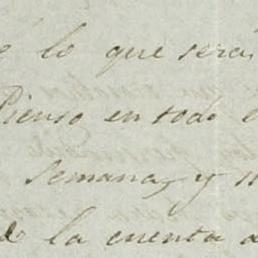 é lo que será
Pienso en todo e
semana, y n
de la cuenta a